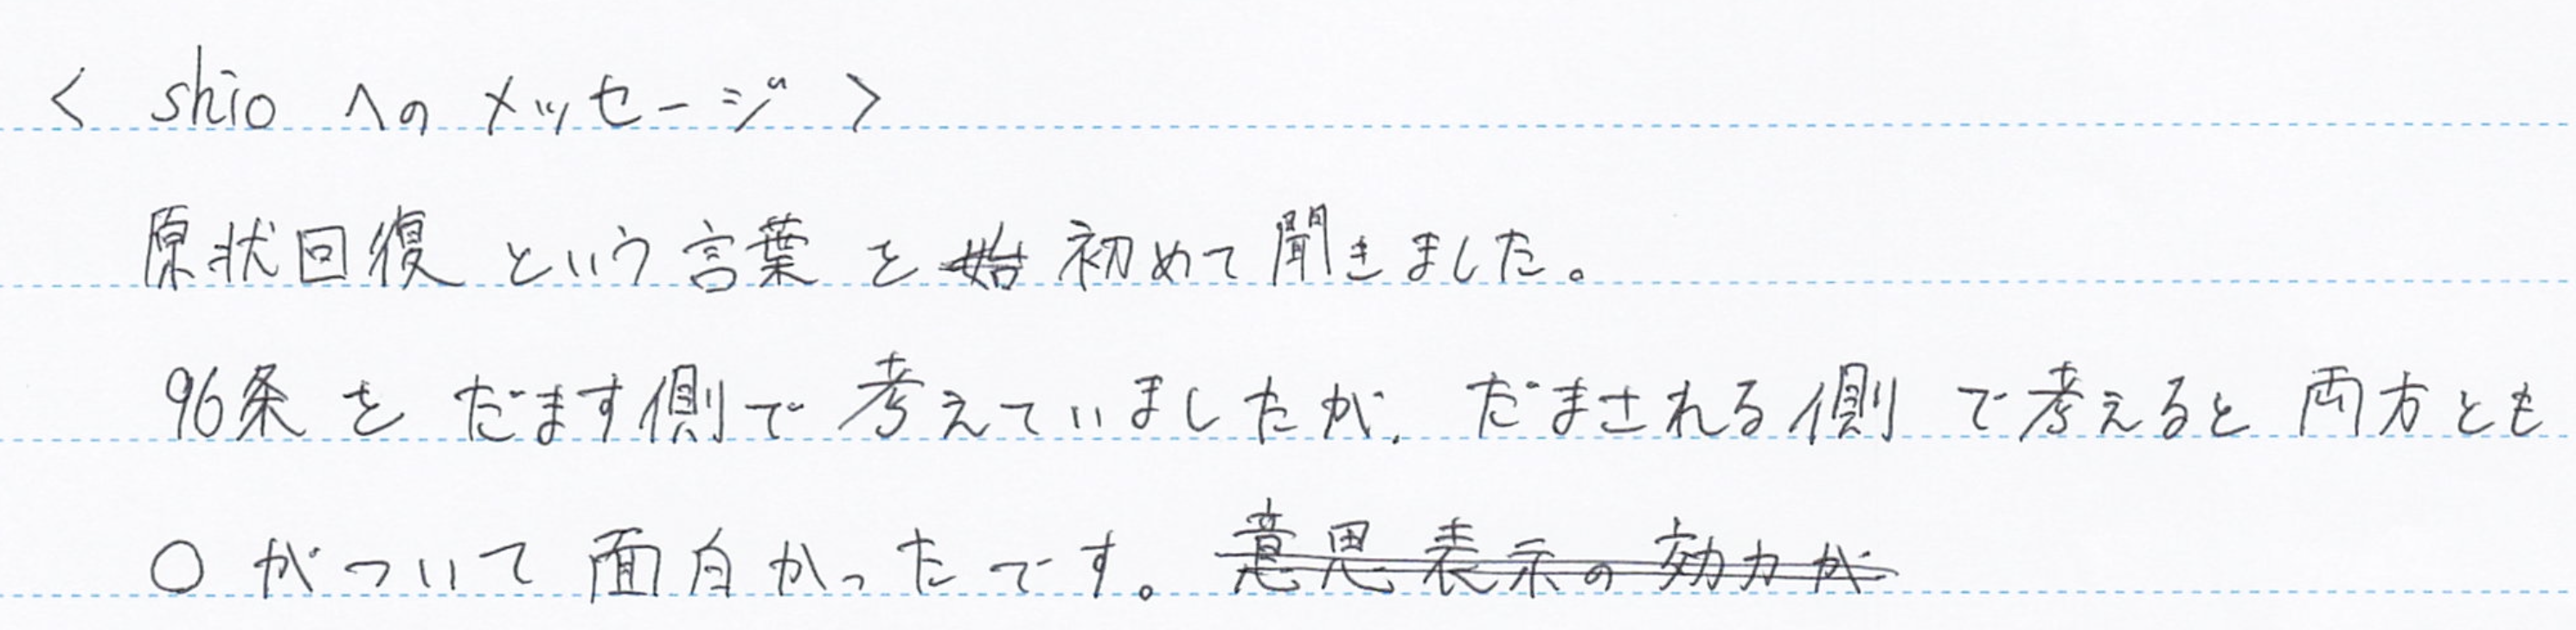 < shio へのメッセージ >
原状回復という言葉を始初めて聞きました。
96条をだます側で考えていましたが、だまされる側で考えると両方とも
○がついて面白かったです。意思表示の効力が